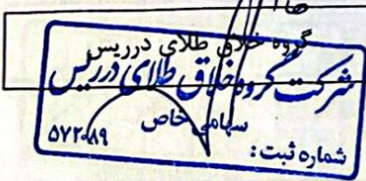 ها
گروه خلاق طلای درریس
شرکت گروه خلاق طلای درریس
سهامی خاص
شماره ثبت: ۵۷۲۰۸۹